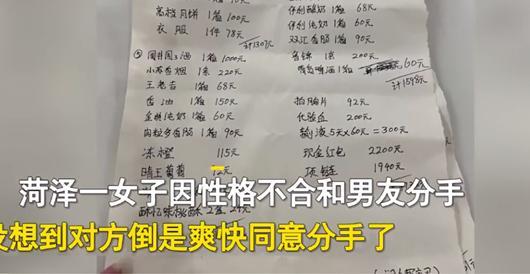 高档月饼 1箱 100元
衣服 1件 78元
计1307元
伊利酸奶 1箱 68元
伊利纯奶 1箱 60元
双汇香肠 1箱 90元
1条 200元
60元
计1598元
⑤ 1箱 1000元
小苏香烟 1条 220元
王老吉 1箱 68元
香油 1箱 150元
纯奶 1箱 60元
肉粒多香肠 1箱 90元
冻橙 115元
晴王葡萄 12元
拍胸片 92元
化验血 200元
输液5天×60元=300元
现金红包 2200元
项链 1940元
菏泽一女子因性格不合和男友分手
没想到对方倒是爽快同意分手了